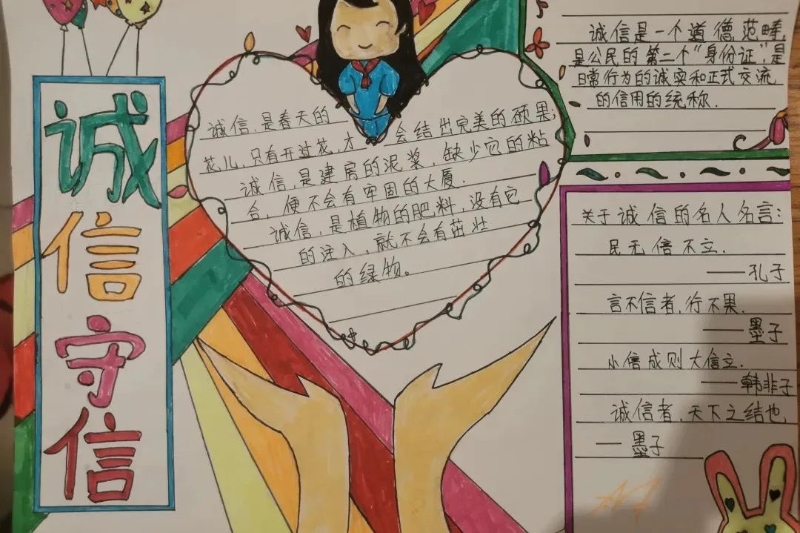 诚信守信
诚信,是春天的
花儿,只有开过花,才 会结出完美的硕果;
诚信,是建房的泥浆,缺少它的粘
合,便不会有牢固的大厦.
诚信,是植物的肥料,没有它
的注入,就不会有茁壮
的绿物。
诚信是一个道德范畴,
是公民的第二个"身份证",是
日常行为的诚实和正式交流
的信用的统称.
关于诚信的名人名言:
民无信不立.
——孔子
言不信者,行不果.
——墨子
小信成则大信立.
——韩非子
诚信者,天下之结也,
——墨子